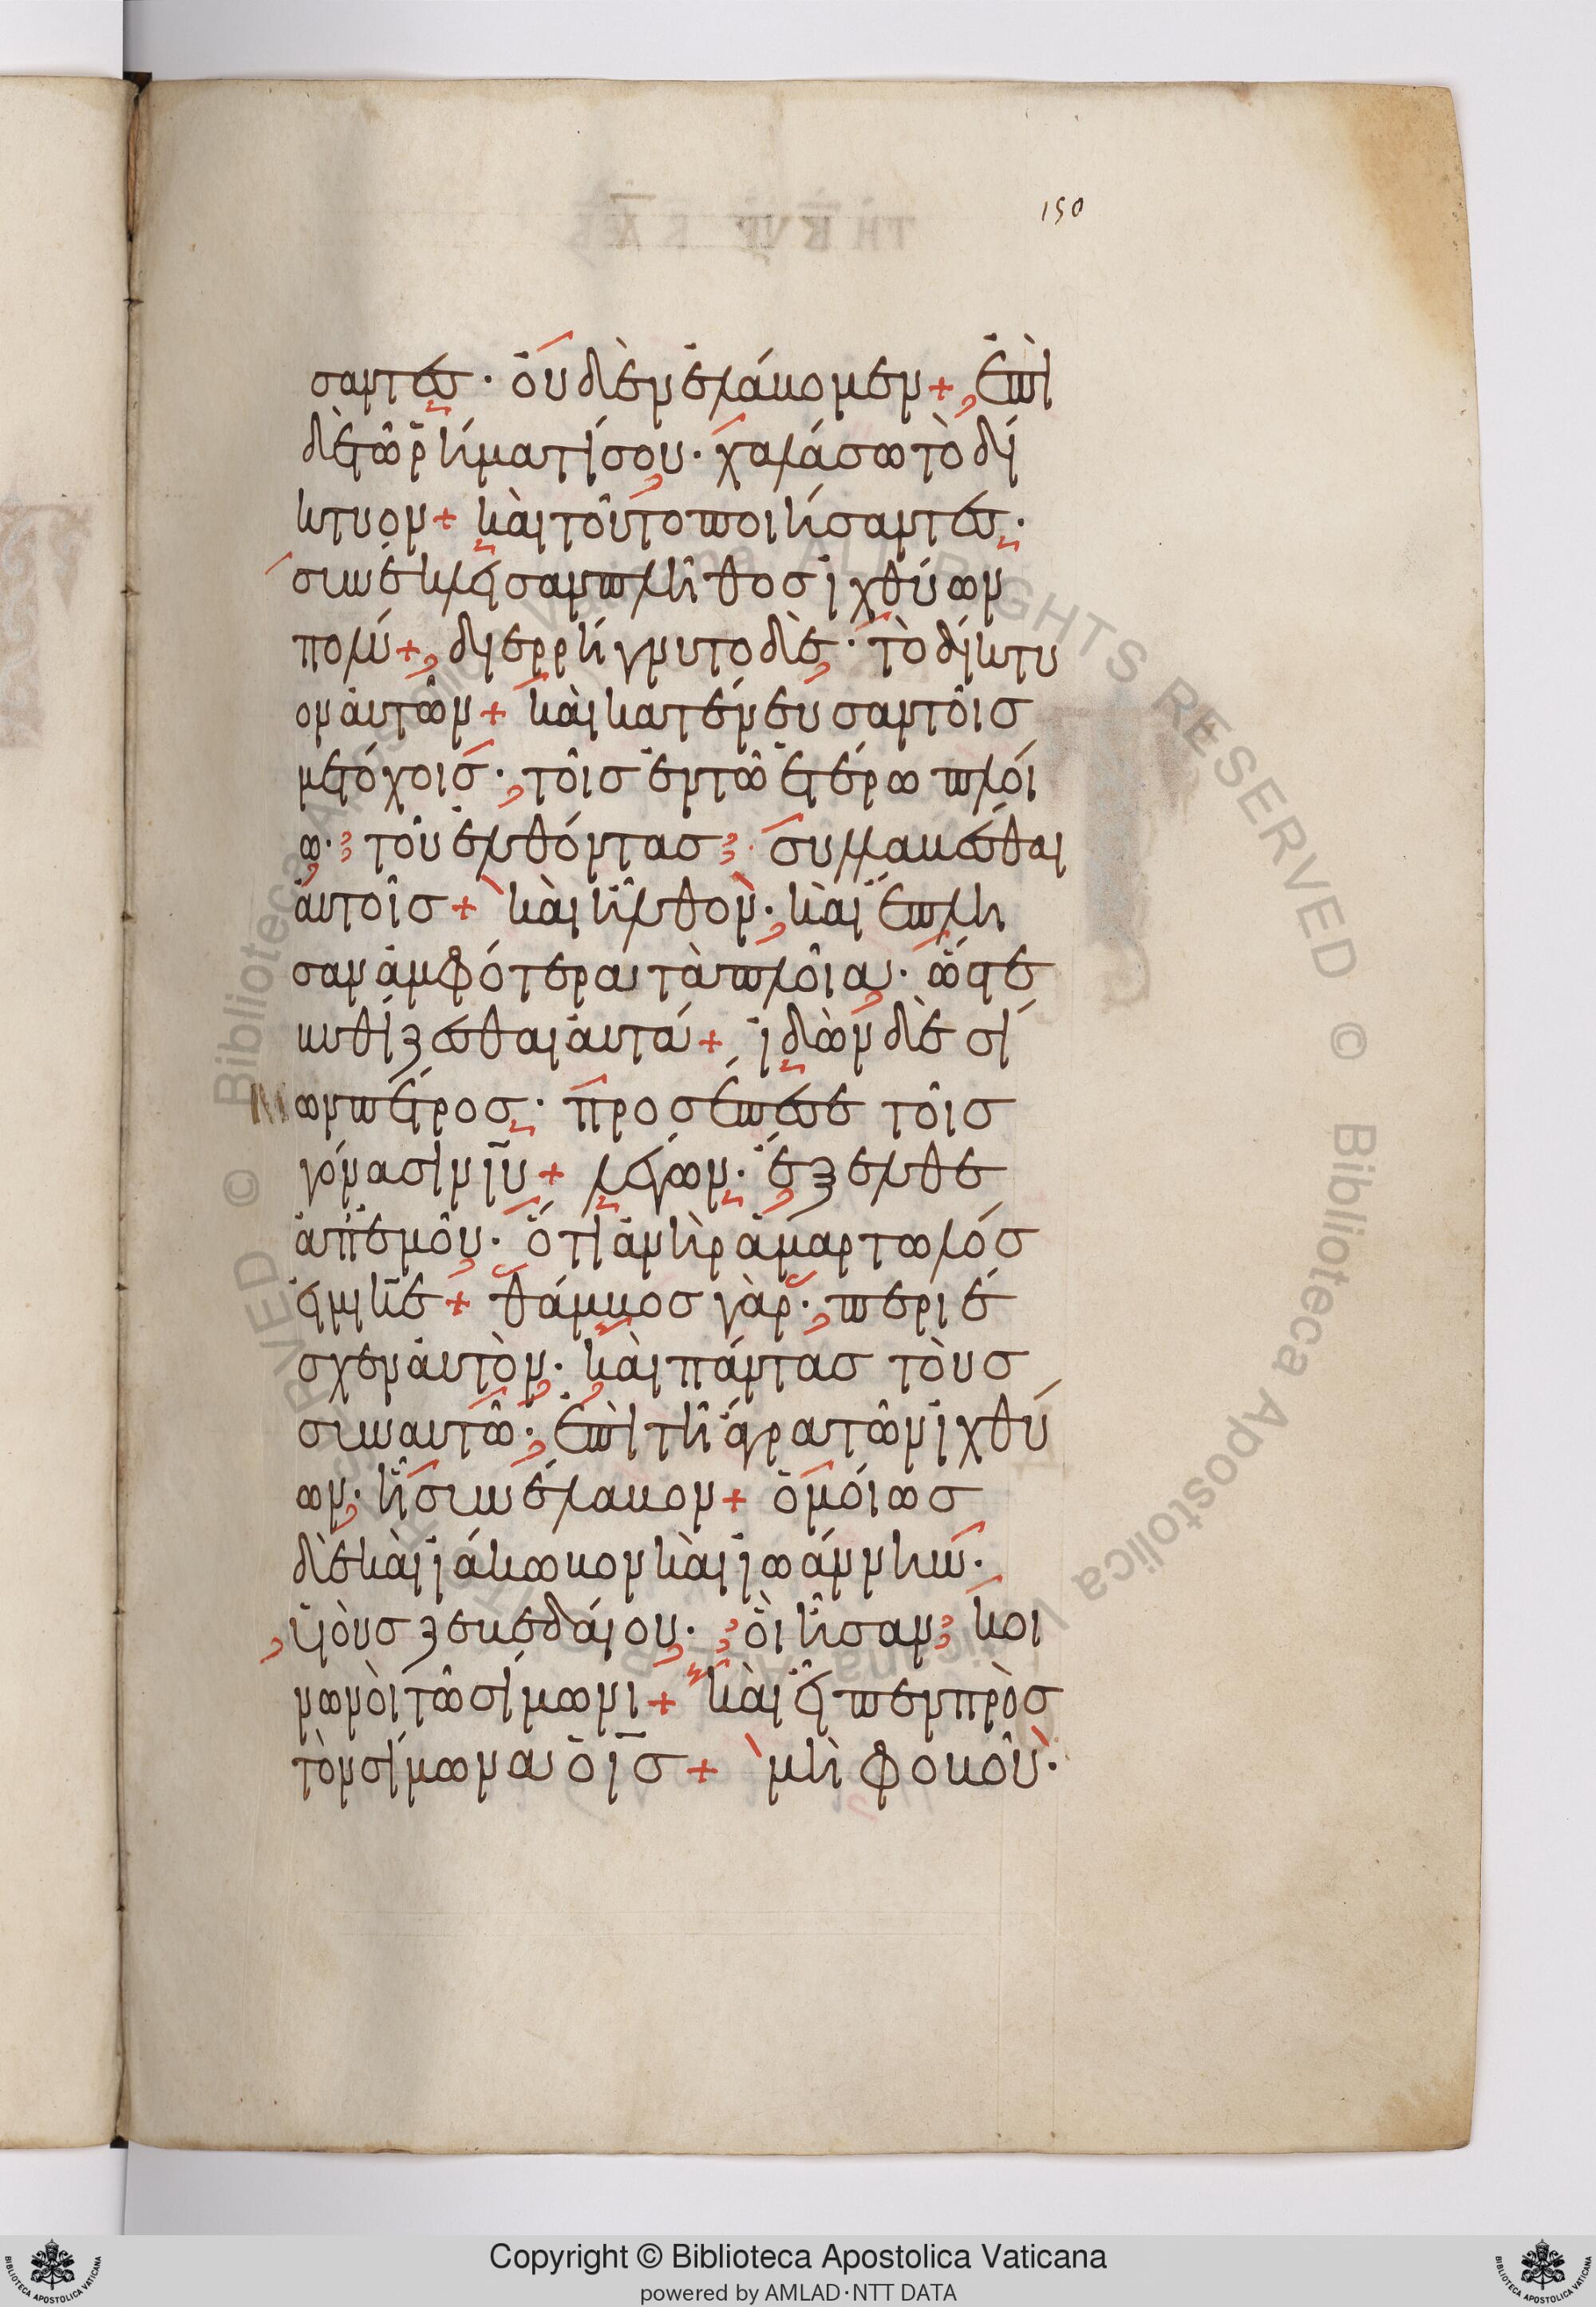 150
σαντες · οὐδὲν ἐλάβομεν + ἐπὶ
δὲ τῶ ῥήματί σου · χαλάσω τὸ δί
κτυον + καὶ τοῦτο ποιήσαντες ·
συνέκλεισαν πλῆθος ἰχθύων
πολύ + διερρήγνυτο δὲ · τὸ δίκτυ
ον αὐτῶν + καὶ κατένευσαν τοῖς
μετόχοις · τοῖς ἐν τῶ ἑτέρω πλοί
ω · τοῦ ἐλθόντας · συλλαβέσθαι
αὐτοῖς + καὶ ἦλθον · καὶ ἔπλη
σαν ἀμφότερα τὰ πλοῖα · ὥστε
βυθίζεσθαι αὐτά + ἰδὼν δὲ σί
μων πέτρος · προσέπεσε τοῖς
γόνασιν ἰ̅υ̅ + λέγων · ἔξελθε
ἀπ' ἐμοῦ · ὅτι ἀνὴρ ἁμαρτωλός
εἰμι κ̅ε̅ + θάμβος γὰρ · περιέ
σχεν αὐτὸν · καὶ πάντας τοὺς
συν αυτῶ · ἐπὶ τῆ ἄγρα τῶν ἰχθύ
ων · ἧ συνέλαβον + ὁμοίως
δὲ καὶ ἰάκωβον καὶ ἰωάννην ·
υἱοὺς ζεβεδαίου · οἳ ἦσαν κοι
νωνοὶ τῶ σίμωνι + καὶ εἶπεν πρὸς
τὸν σίμωνα ὁ ἰ̅ς̅ + μὴ φοβοῦ ·
Copyright © Biblioteca Apostolica Vaticana
powered by AMLAD·NTT DATA
BIBLIOTECA APOSTOLICA VATICANA
BIBLIOTECA APOSTOLICA VATICANA